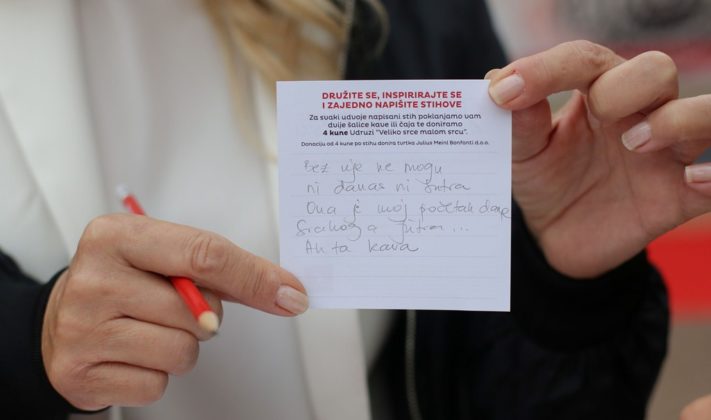 DRUŽITE SE, INSPIRIRAJTE SE
I ZAJEDNO NAPIŠITE STIHOVE
Za svaki udvoje napisani stih poklanjamo vam
dvije šalice kave ili čaja te doniramo
4 kune Udruzi "Veliko srce malom srcu".
Donaciju od 4 kune po stihu donira tvrtka Julius Meinl Bonfanti d.o.o.
Bez nje ne mogu
ni danas ni sutra
Ona je moj početak dana
Svakog a jutra...
Ah ta kava